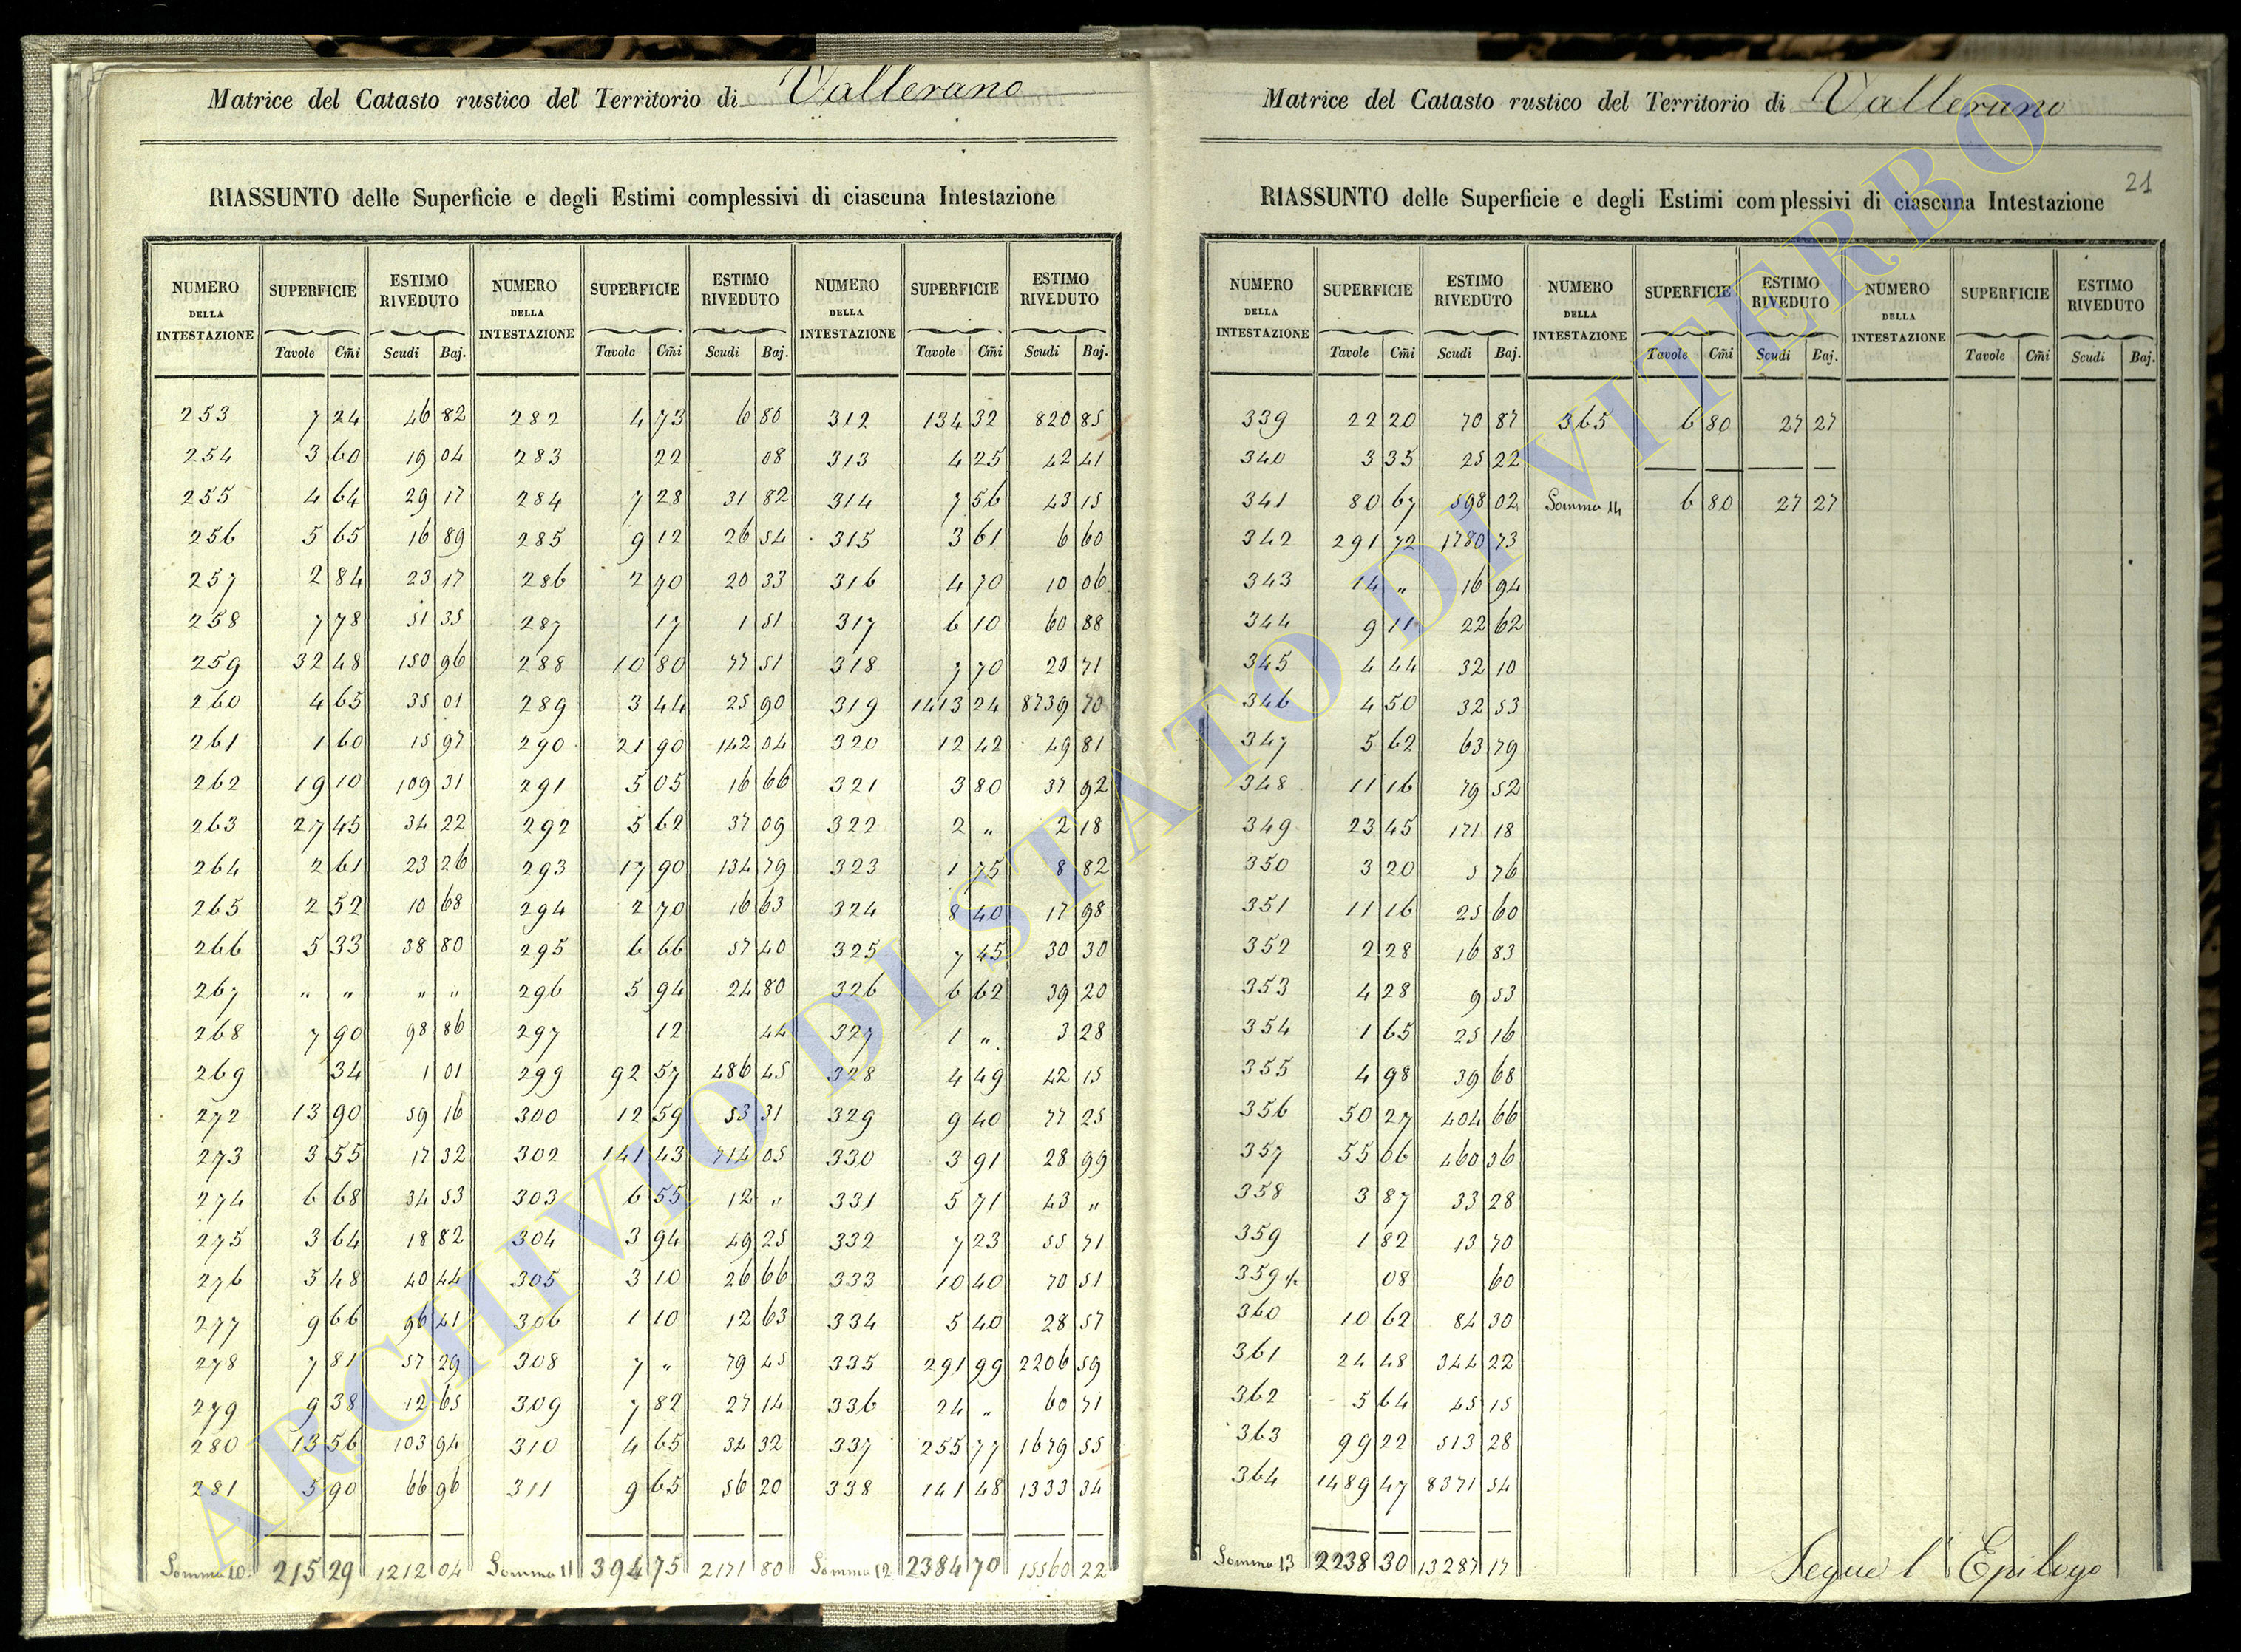 Matrice del Catasto rustico del Territorio di Vallerano
RIASSUNTO delle Superficie e degli Estimi complessivi di ciascuna Intestazione
NUMERO DELLA INTESTAZIONE SUPERFICIE ESTIMO RIVEDUTO NUMERO DELLA INTESTAZIONE SUPERFICIE ESTIMO RIVEDUTO NUMERO DELLA INTESTAZIONE SUPERFICIE ESTIMO RIVEDUTO
Tavole Cm̃i Scudi Baj. Tavole Cm̃i Scudi Baj. Tavole Cm̃i Scudi Baj.
253 7 24 46 82 282 4 73 6 80 312 134 32 820 85
254 3 60 19 04 283 22 08 313 4 25 42 41
255 4 64 29 17 284 7 28 31 82 314 7 56 43 15
256 5 65 16 89 285 9 12 26 54 315 3 61 6 60
257 2 84 23 17 286 2 70 20 33 316 4 70 10 06
258 7 78 51 35 287 17 1 51 317 6 10 60 88
259 32 48 150 96 288 10 80 77 51 318 7 70 20 71
260 4 65 35 01 289 3 44 25 90 319 1413 24 8739 70
261 1 60 15 97 290 21 90 142 04 320 12 42 49 81
262 19 10 109 31 291 5 05 16 66 321 3 80 37 92
263 27 45 34 22 292 5 62 37 09 322 2 „ 2 18
264 2 61 23 26 293 17 90 134 79 323 1 75 8 82
265 2 52 10 68 294 2 70 16 63 324 8 40 17 98
266 5 33 38 80 295 6 66 57 40 325 7 45 30 30
267 „ „ „ „ 296 5 94 24 80 326 6 62 39 20
268 7 90 98 86 297 12 44 327 1 „ 3 28
269 34 1 01 299 92 57 486 45 328 4 49 42 15
272 13 90 59 16 300 12 59 53 31 329 9 40 77 25
273 3 55 17 32 302 141 43 714 05 330 3 91 28 99
274 6 68 34 53 303 6 55 12 „ 331 5 71 43 „
275 3 64 18 82 304 3 94 49 25 332 7 23 55 71
276 5 48 40 44 305 3 10 26 66 333 10 40 70 51
277 9 66 96 41 306 1 10 12 63 334 5 40 28 57
278 7 81 57 29 308 7 „ 79 45 335 291 99 2206 59
279 9 38 12 65 309 7 82 27 14 336 24 „ 60 71
280 13 56 103 94 310 4 65 34 32 337 255 77 1679 55
281 5 90 66 96 311 9 65 56 20 338 141 48 1333 34
Somma 10 215 29 1212 04 Somma 11 394 75 2171 80 Somma 12 2384 70 15560 22
Matrice del Catasto rustico del Territorio di Vallerano
21
RIASSUNTO delle Superficie e degli Estimi complessivi di ciascuna Intestazione
NUMERO DELLA INTESTAZIONE SUPERFICIE ESTIMO RIVEDUTO NUMERO DELLA INTESTAZIONE SUPERFICIE ESTIMO RIVEDUTO NUMERO DELLA INTESTAZIONE SUPERFICIE ESTIMO RIVEDUTO
Tavole Cm̃i Scudi Baj. Tavole Cm̃i Scudi Baj. Tavole Cm̃i Scudi Baj.
339 22 20 70 87 365 6 80 27 27
340 3 35 25 22
341 80 67 598 02 Somma 14 6 80 27 27
342 291 72 1780 73
343 14 „ 16 94
344 9 11 22 62
345 4 44 32 10
346 4 50 32 53
347 5 62 63 79
348 11 16 79 52
349 23 45 171 18
350 3 20 5 76
351 11 16 25 60
352 2 28 16 83
353 4 28 9 53
354 1 65 25 16
355 4 98 39 68
356 50 27 404 66
357 55 06 460 36
358 3 87 33 28
359 1 82 13 70
359 ½ 08 60
360 10 62 84 30
361 24 48 344 22
362 5 64 45 15
363 99 22 513 28
364 1489 47 8371 54
Somma 13 2238 30 13287 17
Segue l' Epilogo
ARCHIVIO DI STATO DI VITERBO